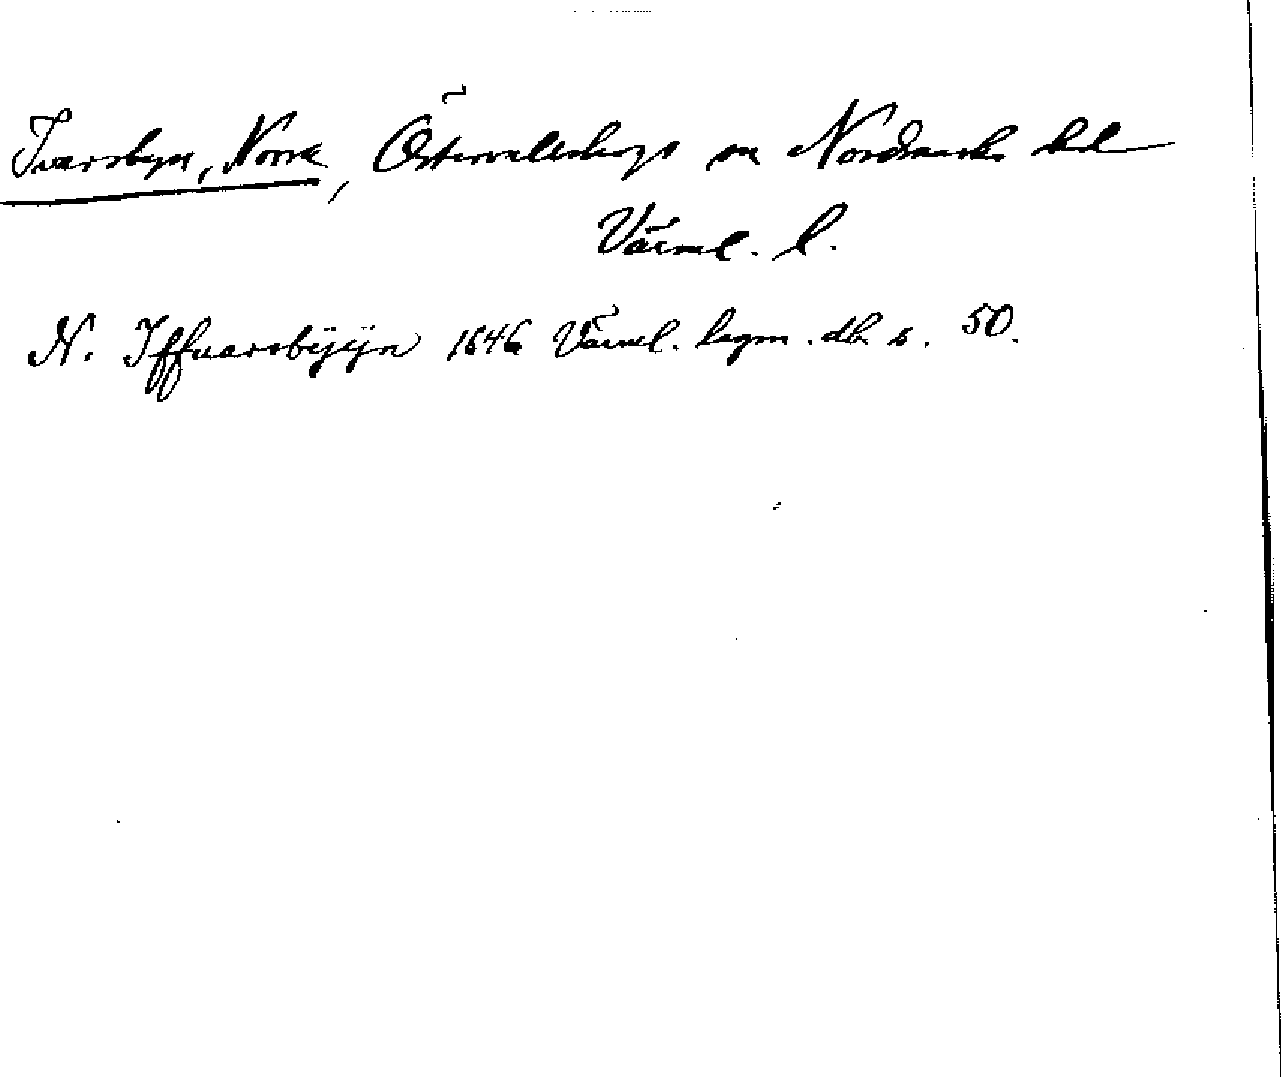 Ivarsbyn, Norra, Östervallskogs sn Nordmarks hd
Värml. l.
N. Iffuarsbÿÿn 1646 Värml. lagm. db. s. 50.